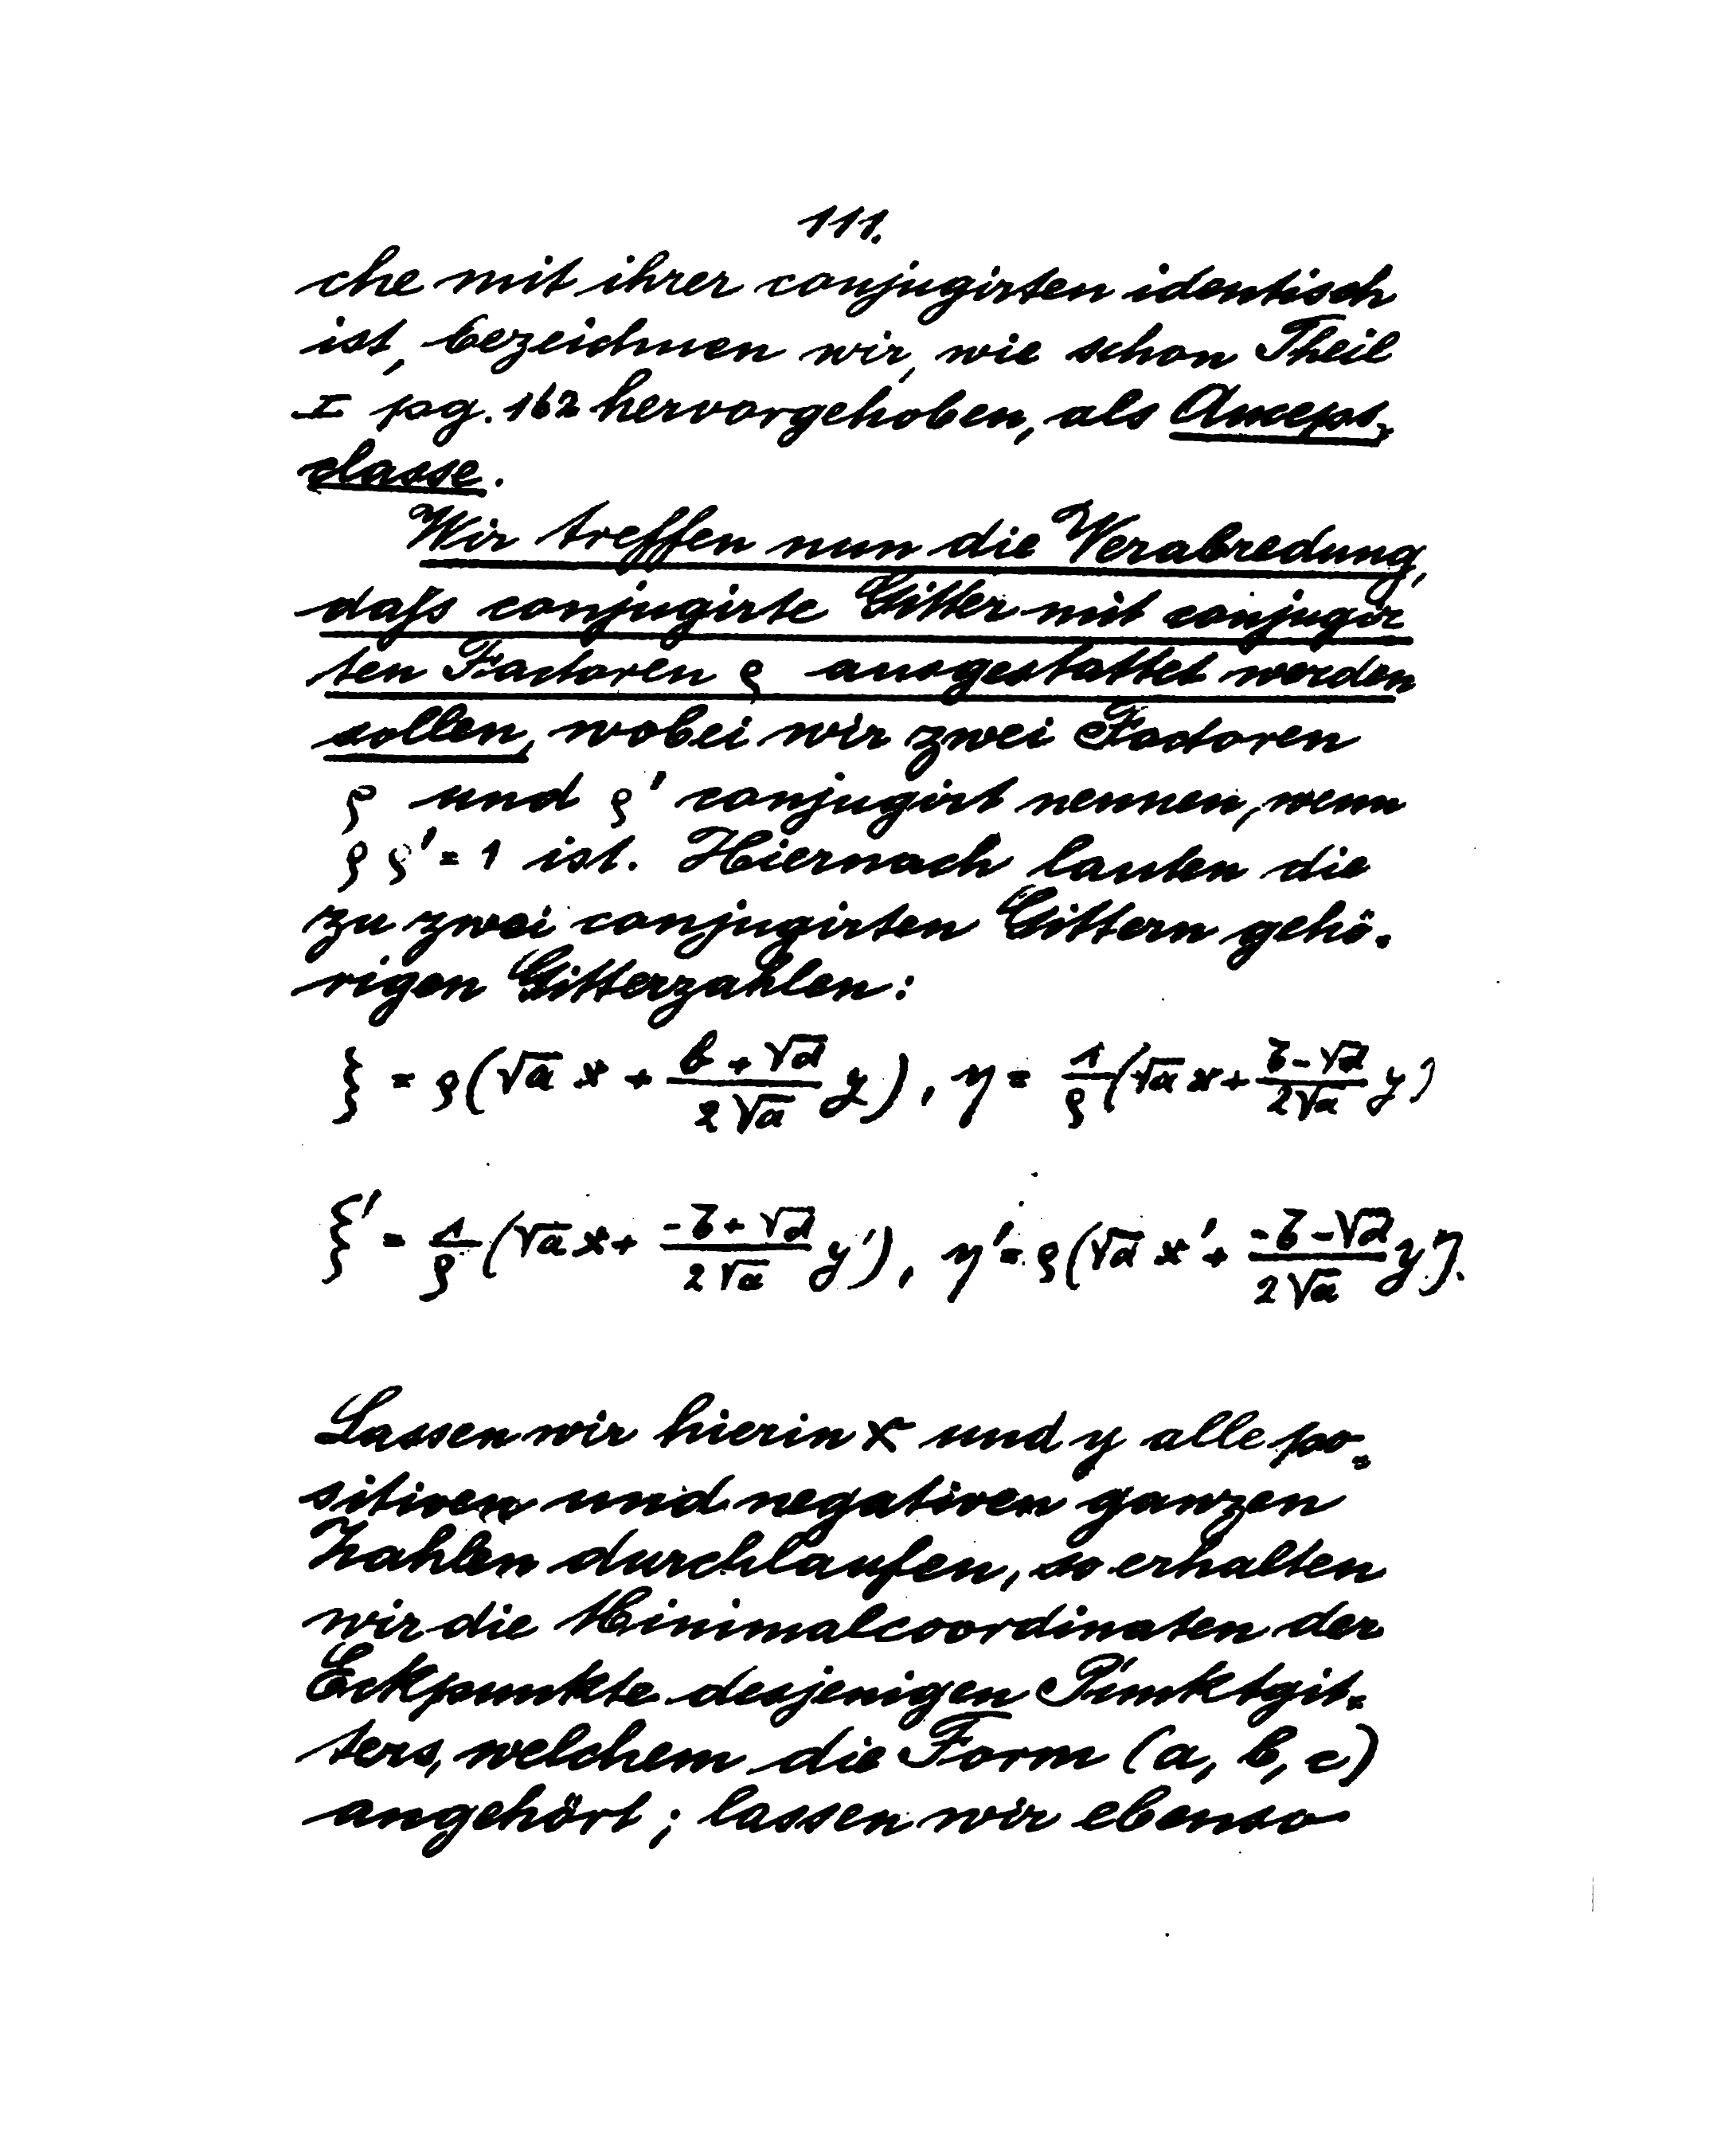 111.
che mit ihrer conjugirten identisch
ist, bezeichnen wir, wie schon Theil
I pag. 162 hervorgehoben, als Anceps-
classe.
Wir treffen nun die Verabredung,
daſs conjugirte Gitter mit conjugir
ten Factoren ϱ ausgestattet werden
sollen, wobei wir zwei Factoren
ϱ und ϱ' conjugirt nennen, wenn
ϱ ϱ' = 1 ist. Hiernach lauten die
zu zwei conjugirten Gittern gehö-
rigen Gitterzahlen:
ξ = ϱ(√a x + (b + √d)/(2√a) y), η = 1/ϱ (√a x + (b - √d)/(2√a) y)
ξ' = 1/ϱ (√a x + (-b + √d)/(2√a) y'), η' = ϱ(√a x' + (-b - √d)/(2√a) y').
Lassen wir hierin x und y alle po=
sitiven und negativen ganzen
Zahlen durchlaufen, so erhalten
wir die Minimalcoordinaten der
Eckpunkte desjenigen Punktgit=
ters, welchem die Form (a, b, c)
angehört; lassen wir ebenso